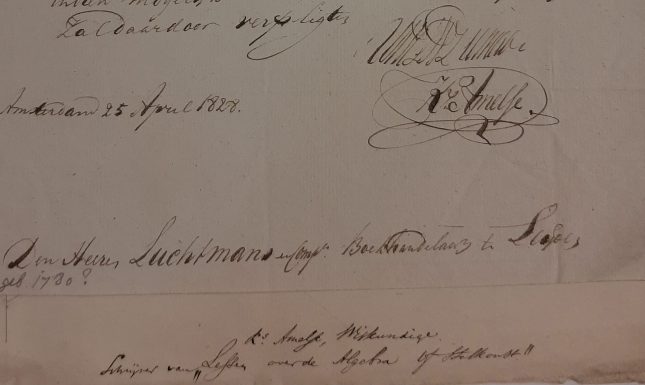 indien mogelijk
Zal daardoor verpligten
UWE DW Dienaar
Ks Amelse.
Amsterdam 25 April 1828.
Den Heeren Luchtmans en Compe. Boekhandelaars te Leiden
geb 1780?
Ks Amelse, Wiskundige.
Schrijver van „Lessen over de Algebra of Stelkonst"